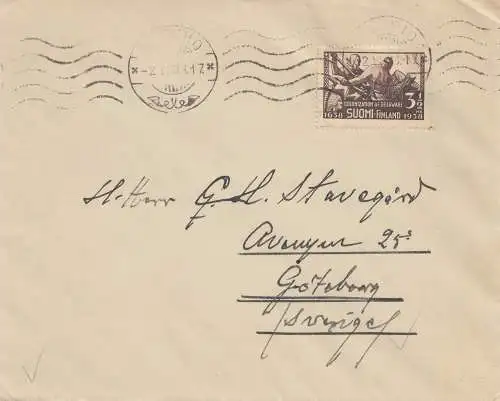 COLONIZATION OF DELAWARE
1638 SUOMI FINLAND 1938
3 1/2
H. Herr G. H. Stavegård
Avenyen 25
Göteborg
/Sverige/